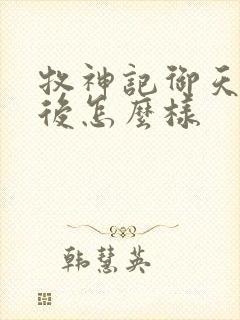 牧神記御天
後怎麼樣
韩慧英